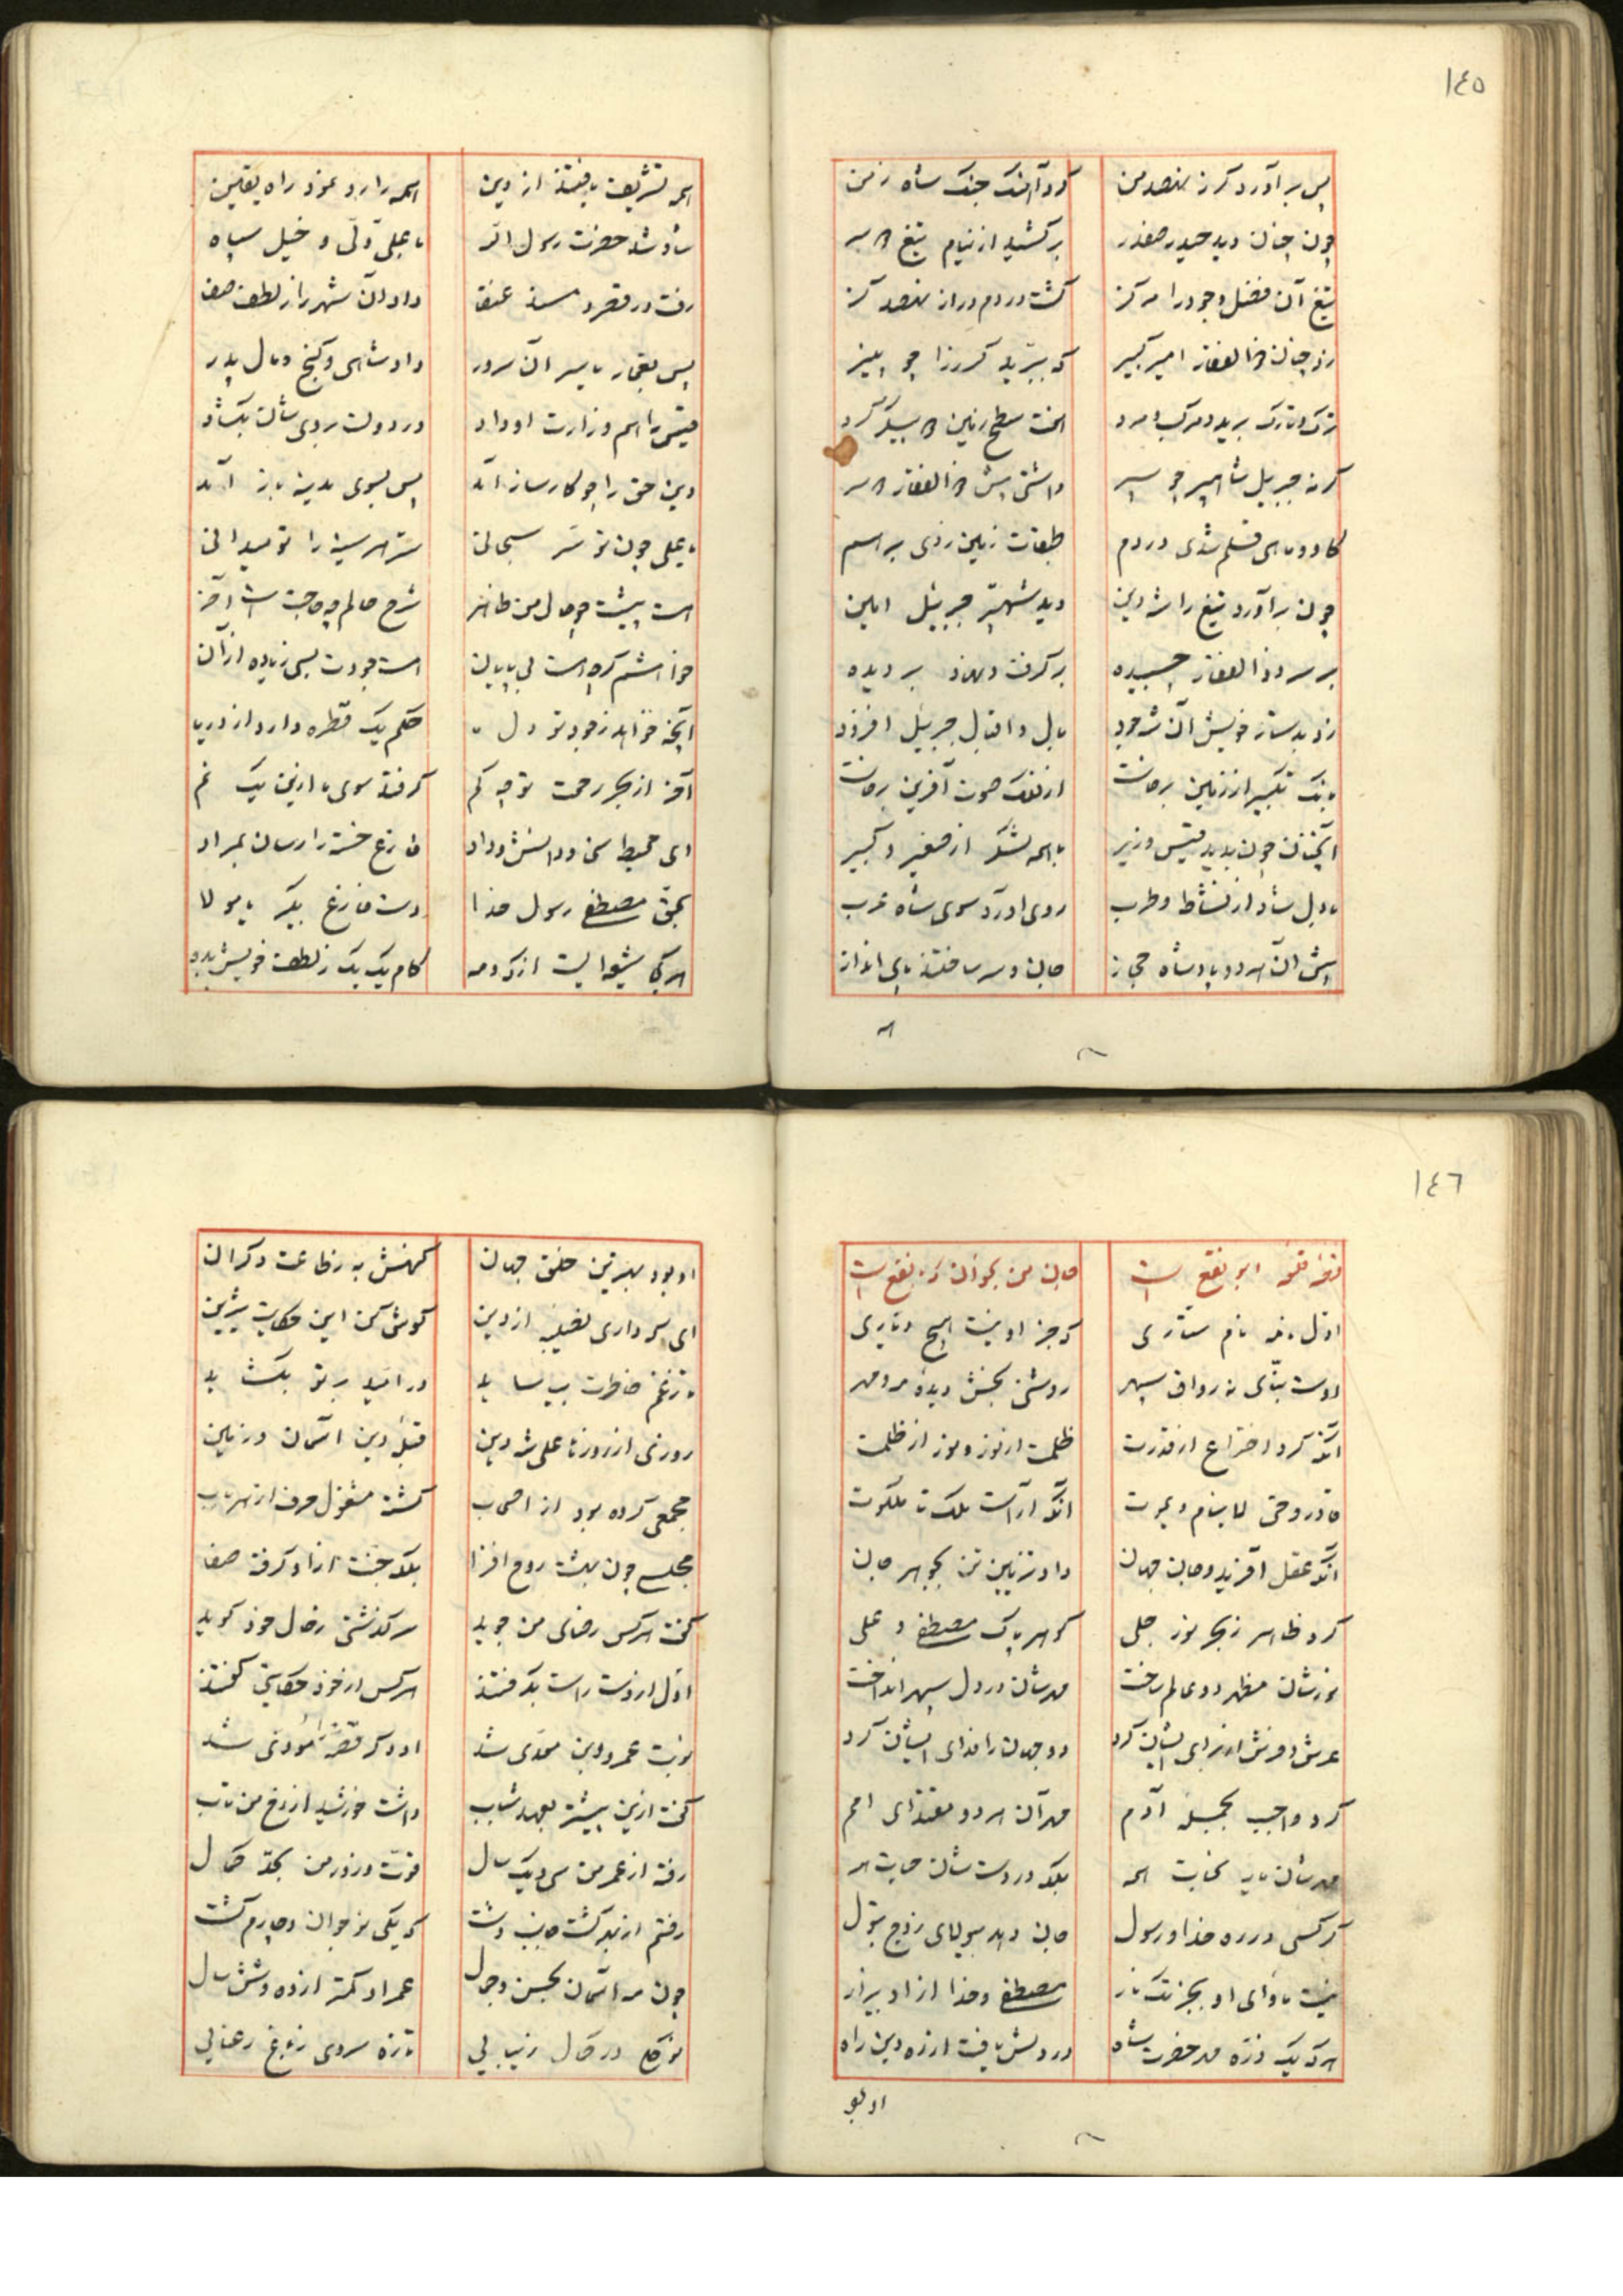 ١٤٥
پس بر آورد کرز نهصد من کرد آهنک جنک شاه زمن
چون چنان دید حیدر صفدر برکشید از نیام تیغ دو سر
تیغ آن فضل وجود را مرکز کشت در دم دراز نهصد کز
زد چنان ذالفقار امیر کبیر که ببرید کرز را چو پنیر
ترک و تارک برید و مرکب و مرد سطح زمین
کرنه جبریل شاهپر چو سپر داشتی پیش ذالفقار دو سر
کاو و ماهی قلم شدی در دم طبقات زمین زدی بر هم
چون بر آورد تیغ را شه دین دید شهپر جبریل امین
بر سر ذوالفقار چسپیده بر کرفت و نهاد بر دیده
زد بدستار خویش آن شه جود بال و اقبال جبرئیل افزود
بانک تکبیر از زمین برخاست از فلک صوت آفرین برخاست
آنچنان چون بدید قیس وزیر با همه لشکر از صغیر و کبیر
با دل شاد از نشاط و طرب روی آورد سوی شاه عرب
پیش آن هر دو پادشاه حجاز جان و سر ساختند پای انداز
همه تشریف یافتند از دین همه را رو نمود راه یقین
شاد شد حضرت رسول اله با علی ولی و خیل سپاه
رفت در قصر و مسند داد آن شهر را ز لطف صفا
پس بعمار یاسر آن سرور داد شاهی و کنج و مال پدر
قیس را هم وزارت او داد در دولت بروی شان بکشاد
دین حق را چو کارساز آمد پس بسوی مدینه باز آمد
یا علی چون تو سر سبحانی سر هر سینه را تو میدانی
هست پیشت چو حال من ظاهر شرح حالم چه حاجت است آخر
خواهشم کرچه است بی پایان هست جودت بسی زیاده از آن
آنچه خواهد ز جود تو دل ما حکم یک قطره دارد از دریا
آخر از بحر رحمت تو چه کم کر فتد سوی ما ازین یک نم
ای محیط سخا و دانش و داد فارغ خسته را رسان بمراد
بحق مصطفی رسول خدا دست فارغ بکیر یا مولا
هر کجا شیعه ایست از که و مه کام یک یک ز لطف خویش بده
١٤٦
قصه قلعه ابو نفع است جان من بخوان که نفع است
اول نامه نام ستاری که جز او نیست هیچ دیاری
اوست بنای نه رواق سپهر روشنی بخش دیده مه و مهر
آنکه کرد اختراع از قدرت ظلمت از نور و نور از ظلمت
قادر و حی لا ینام و یموت آنکه آراست ملک تا ملکوت
آنکه عقل آفرید و جان جهان داد تزیین تن بجوهر جان
کرد ظاهر ز بحر نور جلی کوهر پاک مصطفی و علی
نورشان مظهر دو عالم ساخت مهرشان در دل سپهر انداخت
عرش و فرش از برای ایشان کرد دو جهان را فدای ایشان کرد
کرد واجب بجمله آدم مهر آن هر دو مقتدای امم
مهرشان باب نجات همه بلکه در دست شان حیات همه
هر کسی در ره خدا و رسول جان دهد بیولای زوج بتول
نیست ماوای او بجز تک نار مصطفی و خدا از او بیزار
هر که یک ذره مهر حضرت شاه در دلش یافت از ره دین راه
او بود بهترین خلق جهان کهنش به ز طاعت دکران
ای که داری نصیبه از دین کوش کن این حکایت شیرین
تا ز غم خاطرت بیاساید در امید بر تو بکشاید
روزی از روزها علی شه دین قبله دین آسمان و زمین
مجمعی کرده بود از اصحاب کشته مشغول حرف از هر باب
مجلسی چون بهشت روح افزا بلکه جنت از او کرفته صفا
کفت هر کس رضای من جوید سرکذشتی ز حال خود کوید
اول از دست راست بکرفتند هر کس از خود حکایتی کفتند
نوبت عمرو ابن معدی شد او دکر قصه را مودی شد
کفت ازین پیشتر بعهد شباب داشت خورشید از رخ من تاب
رفته از عمر من سی و یک سال قوت و زور من بحد کمال
رفتم از بهر کشت جانب دشت که یکی نو جوان دچارم کشت
چون مه آسمان بحسن و جمال عمر او کمتر از ده و شش سال
نو کلی در کمال زیبایی تازه سروی ز باغ رعنایی
او بو